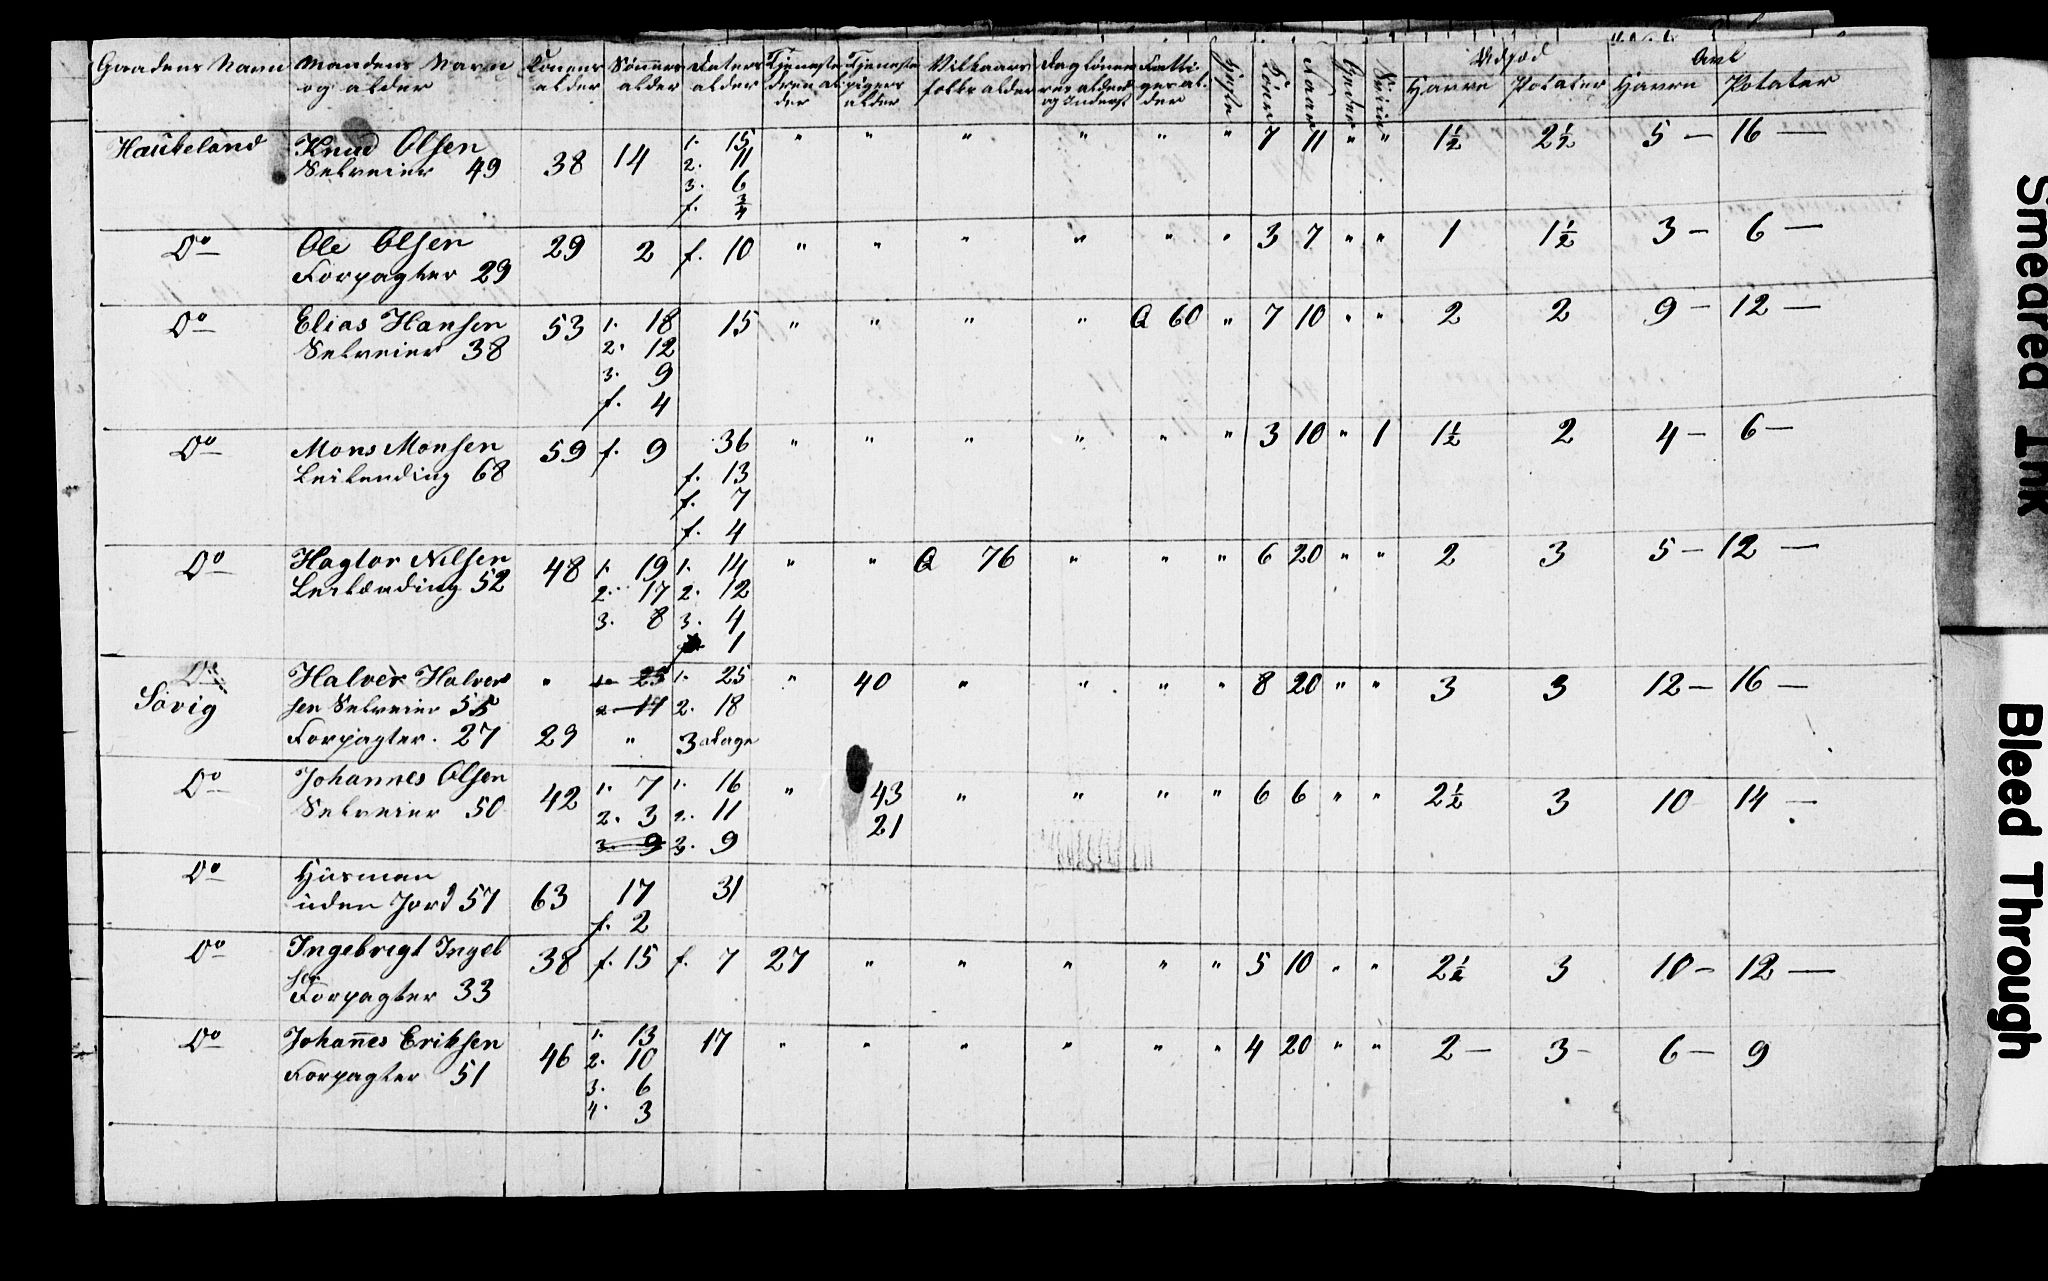 Gaardens Navn | Mandens Navn og alder | Konens alder | Sönners alder | Døters alder | Tjenestedrenges alder | Tjenestepigers alder | Vilkaarsfolks alder | Daglönneres alder og Inderst | Fattiges alder | Heste | Köer | Faar | Geder | Sviin | Udsæd Havre | Potater | Avl Havre | Potater
Haukeland Knud Olsen 1. 15 " " " " " " 7 11 " " 1½ 2½ 5 – 16 –
Selveier 49 38 14 2. 11
3. 6
f. ¾
Do Ole Olsen 29 2 f. 10 " " " " " " 3 7 " " 1 1½ 3 – 6 –
Forpagter 29
Do Elias Hansen 53 1. 18 15 " " " " Q 60 " 7 10 " " 2 2 9 – 12 –
Selveier 38 2. 12
3. 9
f. 4
Do Mons Monsen 59 f. 9 36 " " " " " " 3 10 " 1 1½ 2 4 – 6 –
Leilending 68 f. 13
f. 7
f. 4
Do Hagtor Nilsen 48 1. 19 1. 14 " " Q 76 " " " 6 20 " " 2 3 5 – 12 –
Leilænding 52 2. 17 2. 12
3. 8 3. 4
1
Do Halver Halver " 1. 25 1. 25 " 40 " " " " 8 20 " " 3 3 12 – 16 –
Sövig sen Selveier 55 2. 17 2. 18
Forpagter. 27 29 " 3 Dage
Do Johannes Olsen 42 1. 7 1. 16 " 43 " " " " 6 6 " " 2½ 3 10 14 –
Selveier 50 2. 3 2. 11 21
3. 9 3. 9
Do Husman
uden Jord 57 63 17 31
f. 2
Do Ingebregt Ingeb 38 f. 15 f. 7 27 " " " " " 5 10 " " 2½ 3 10 – 12 –
sen
Forpagter 33
Do Johannes Eriksen 46 1. 13 17 " " " " " " 4 20 " " 2 – 3 – 6 – 9
Forpagter 51 2. 10
3. 6
4. 3
Smeared Ink
Bleed Through